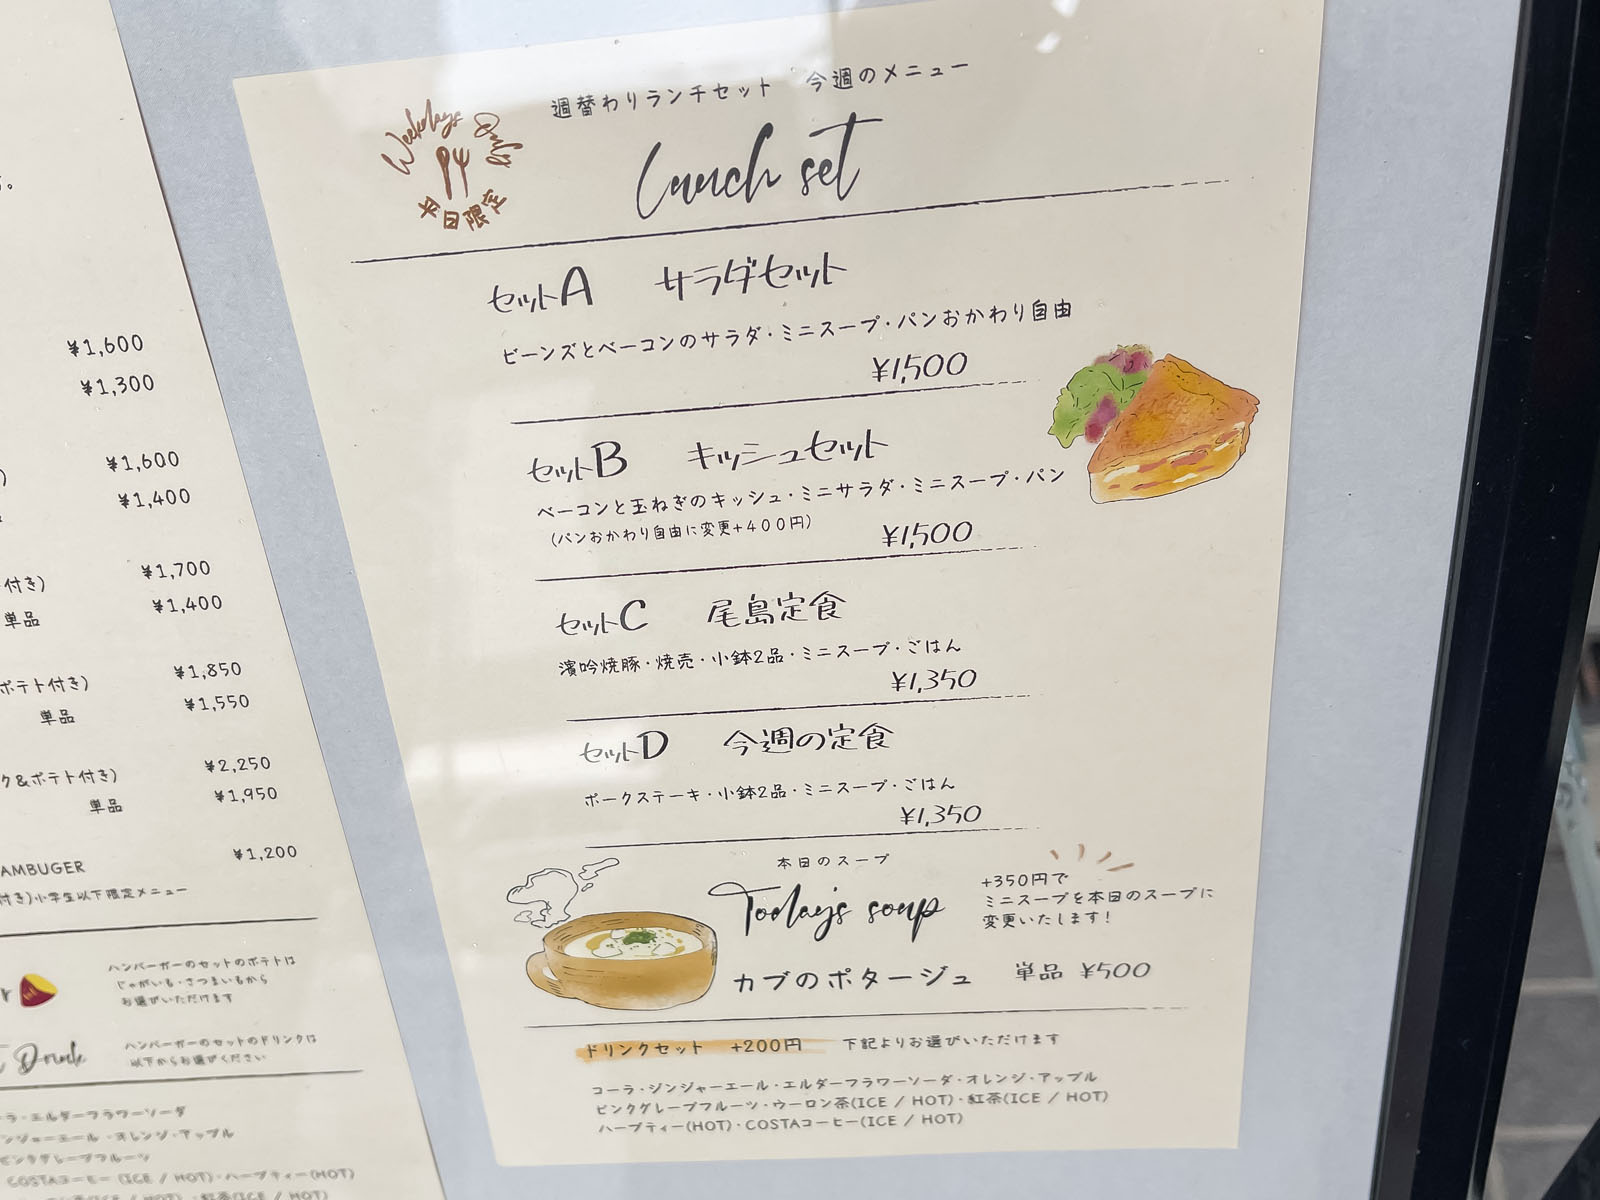 。
¥1,600
¥1,300
) ¥1,600
¥1,400
付き) ¥1,700
単品 ¥1,400
ポテト付き) ¥1,850
単品 ¥1,550
ク&ポテト付き) ¥2,250
単品 ¥1,950
AMBUGER ¥1,200
付き)小学生以下限定メニュー
ハンバーガーのセットのポテトは
じゃがいも・さつまいもから
お選びいただけます
Drink
ハンバーガーのセットのドリンクは
以下からお選びください
ラ・エルダーフラワーソーダ
ンジャーエール・オレンジ・アップル
ピンクグレープフルーツ
COSTAコーヒー(ICE / HOT)・ハーブティー(HOT)
ーロン茶(ICE / HOT)・紅茶(ICE / HOT)
週替わりランチセット 今週のメニュー
Weekdays Only
平日限定
Lunch set
セットA サラダセット
ビーンズとベーコンのサラダ・ミニスープ・パンおかわり自由
¥1,500
セットB キッシュセット
ベーコンと玉ねぎのキッシュ・ミニサラダ・ミニスープ・パン
(パンおかわり自由に変更+400円) ¥1,500
セットC 尾島定食
濱吟焼豚・焼売・小鉢2品・ミニスープ・ごはん
¥1,350
セットD 今週の定食
ポークステーキ・小鉢2品・ミニスープ・ごはん
¥1,350
本日のスープ
Today's soup
+350円で
ミニスープを本日のスープに
変更いたします!
カブのポタージュ 単品 ¥500
ドリンクセット +200円 下記よりお選びいただけます
コーラ・ジンジャーエール・エルダーフラワーソーダ・オレンジ・アップル
ピンクグレープフルーツ・ウーロン茶(ICE / HOT)・紅茶(ICE / HOT)
ハーブティー(HOT)・COSTAコーヒー(ICE / HOT)